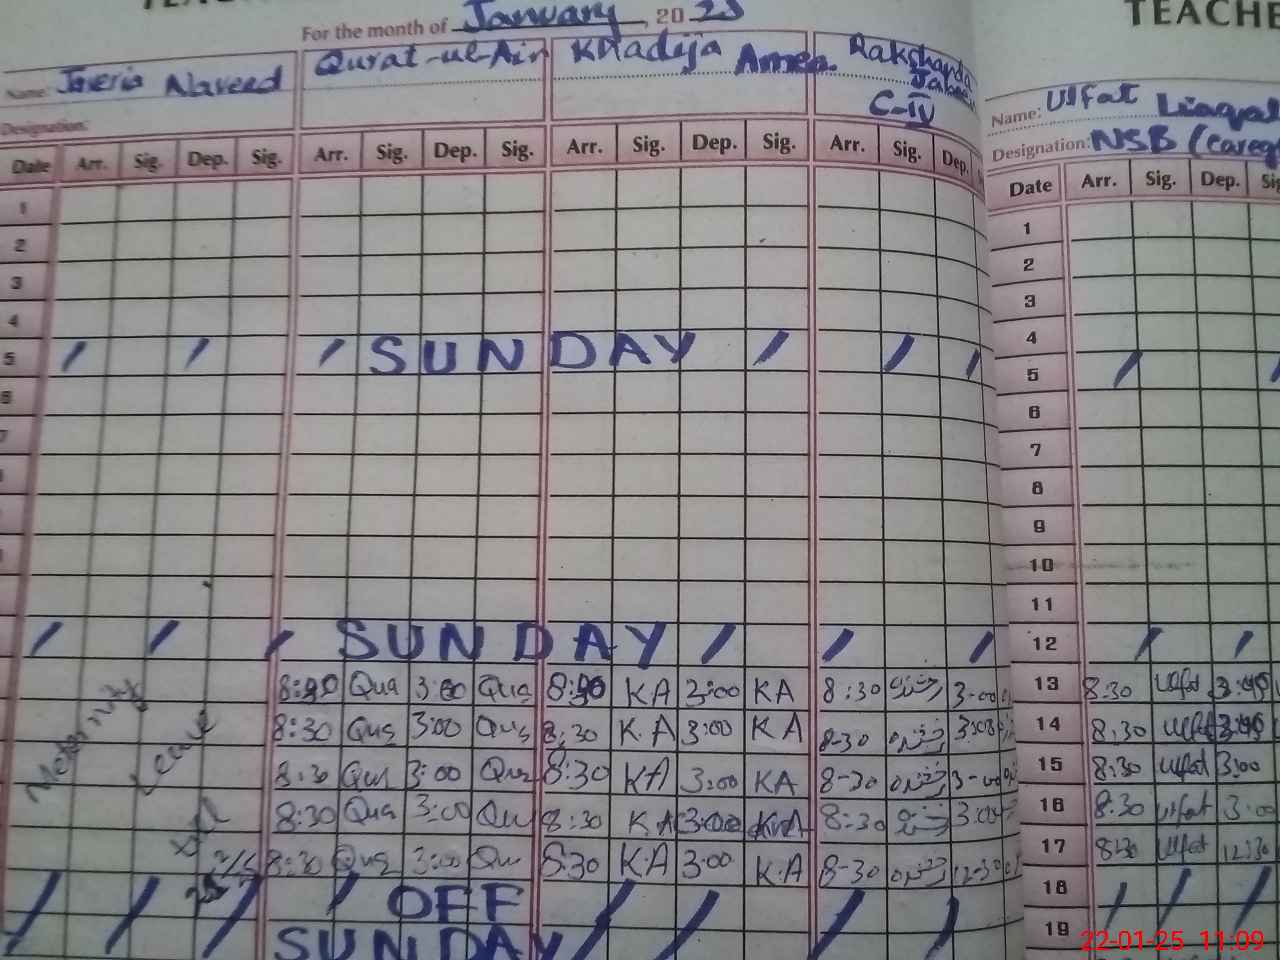 TEACHE
For the month of January, 2025
Name: Javeria Naveed Qurat-ul-Ain Khadija Ameen Rakshanda
C-IV
Name: Ulfat Liaqat
Designation:
Designation: NSB (Careg
Date Arr. Sig. Dep. Sig. Arr. Sig. Dep. Sig. Arr. Sig. Dep. Sig. Arr. Sig. Dep.
Date Arr. Sig. Dep. Sig
1 1
2 2
3 3
4 4
5 SUNDAY 5
6 6
7 7
8
9
10
11
SUNDAY 12
8:30 Qua 3:00 Qua 8:30 KA 3:00 KA 8:30 3-00 13 8:30 Ulfat
8:30 Qua 3:00 Qua 8:30 K.A 3:00 KA 8-30 3:00 14 8:30 Ulfat
8:30 Qua 3:00 Qua 8:30 KA 3:00 KA 8-30 3-00 15 8:30 Ulfat 3:00
8:30 Qua 3:00 Qu 8:30 KA 3:00 KA 8-30 3:00 16 8:30 Ulfat 3:00
8:30 Qua 3:00 Qu 8:30 K.A 3:00 K.A 8-30 12-30 17 8:30 Ulfat 12:30
Maternity Leave
OFF 18
SUNDAY 19
22-01-25 11:09